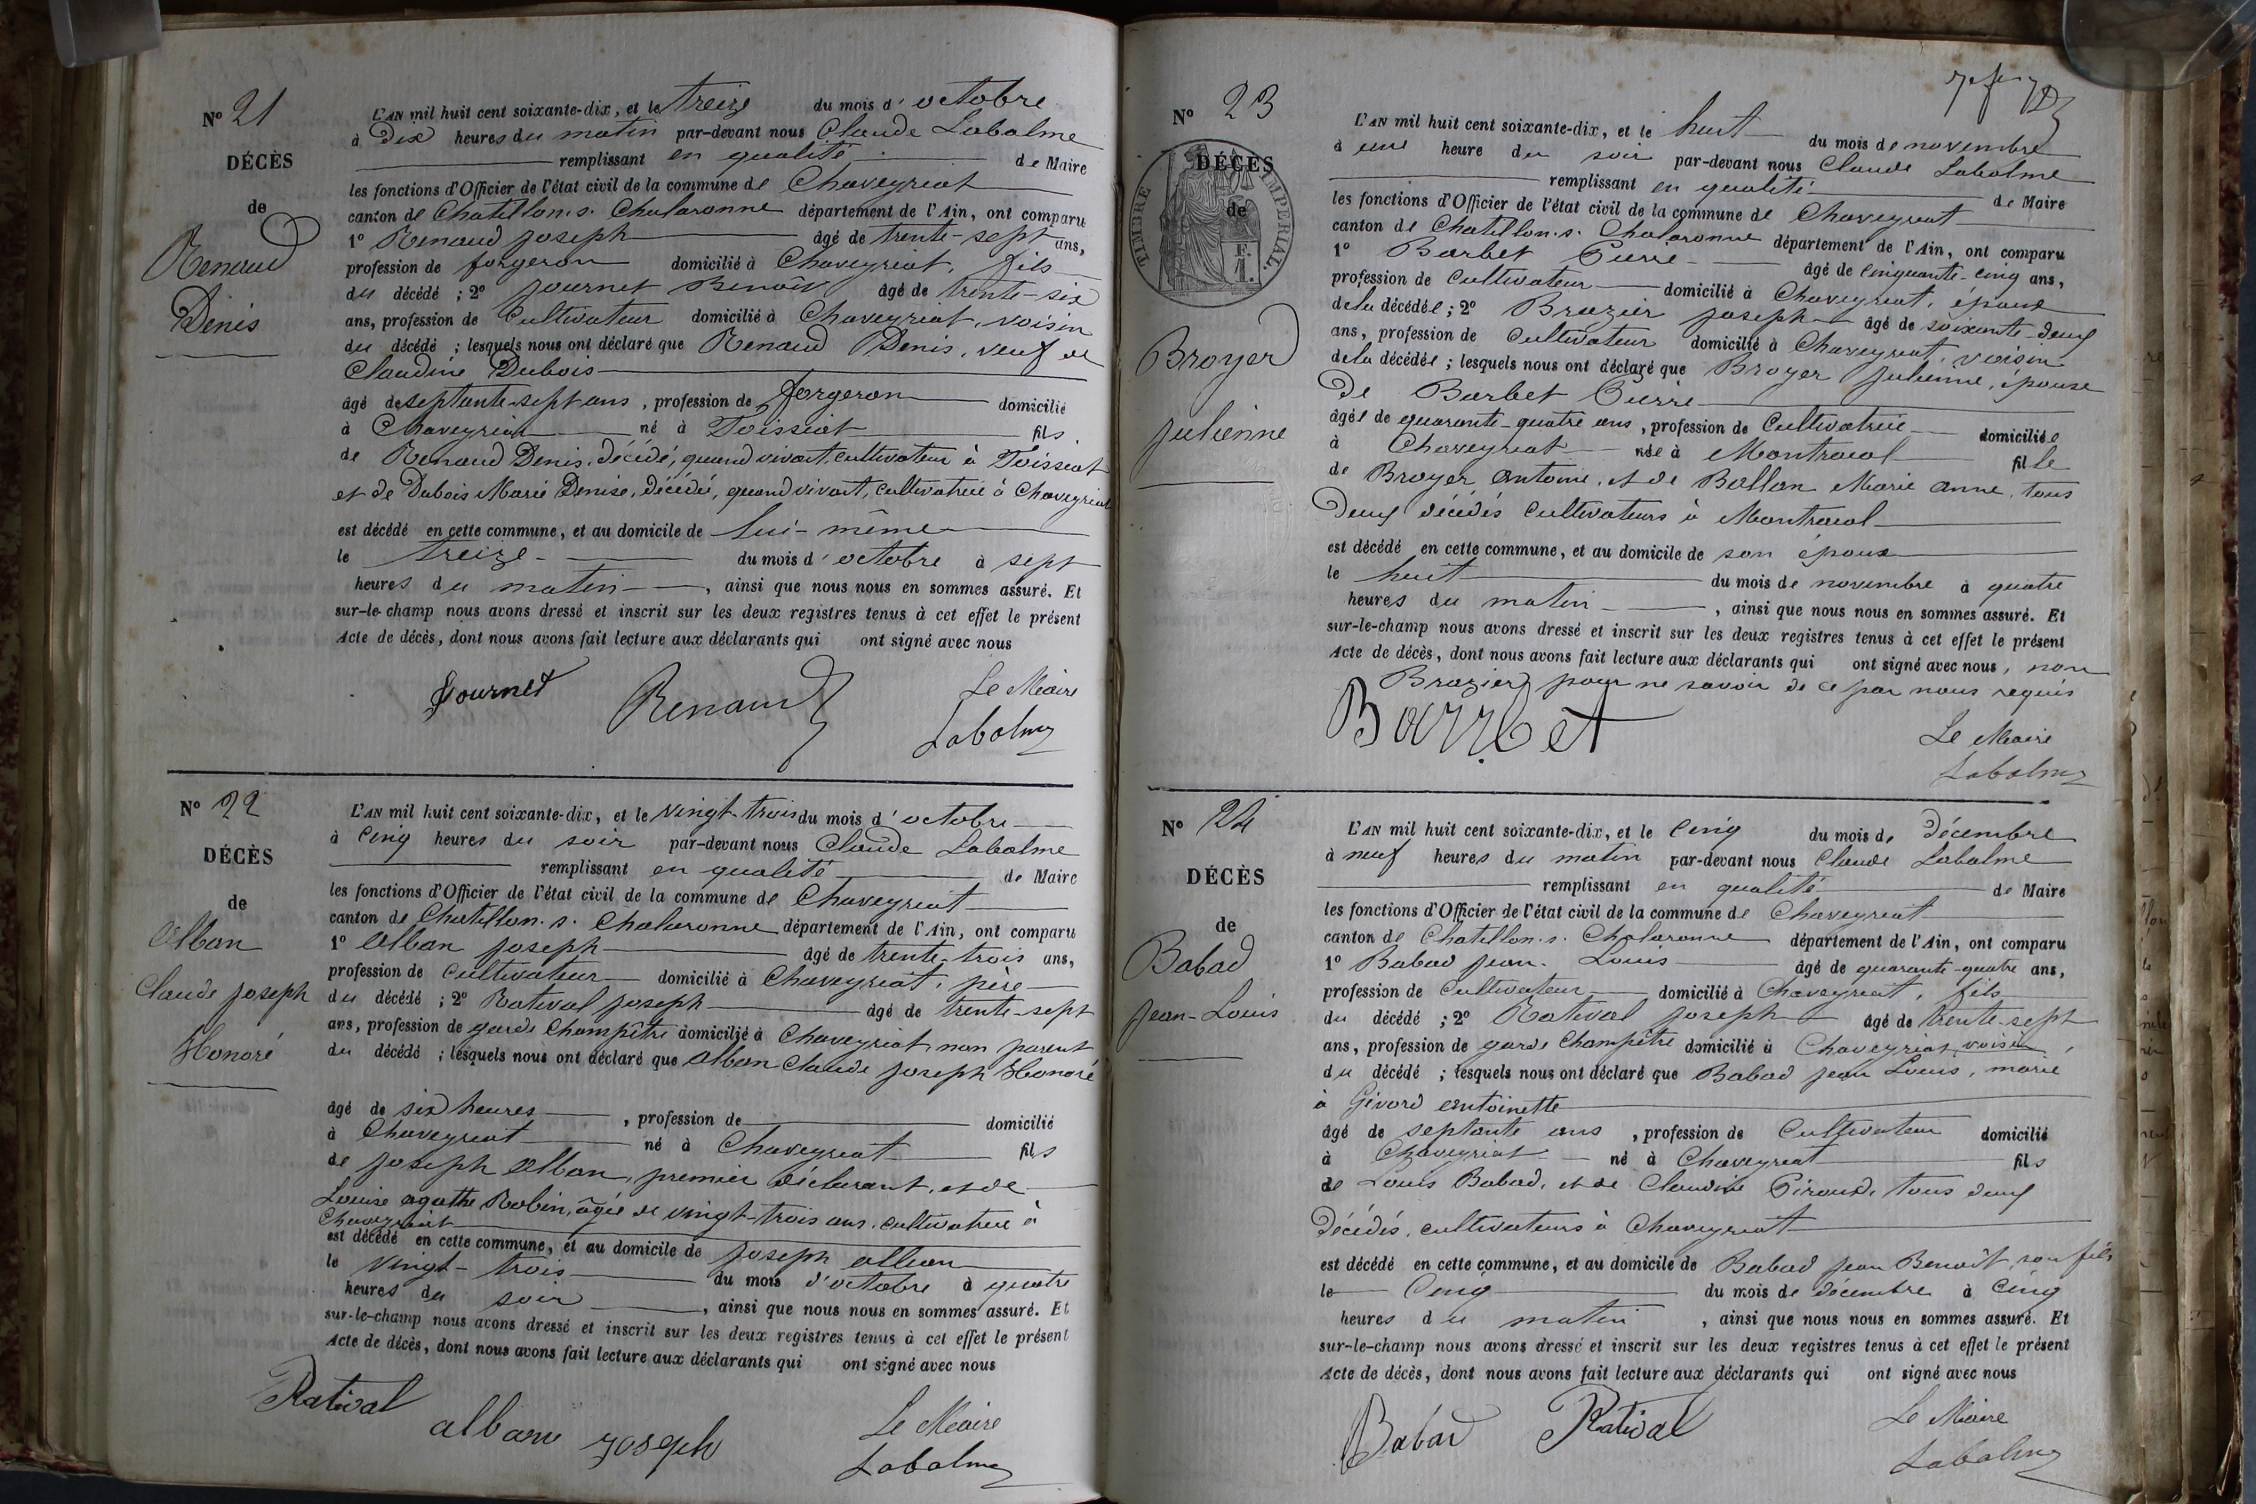 N° 21
DÉCÈS
de
Renaud
Denis
L'AN mil huit cent soixante-dix, et le treize du mois d'octobre
à dix heures du matin par-devant nous Claude Labalme
remplissant en qualité de Maire
les fonctions d'Officier de l'état civil de la commune de Chaveyriat
canton de Chatillon-s. Chalaronne département de l'Ain, ont comparu
1° Renaud Joseph âgé de trente-sept ans,
profession de forgeron domicilié à Chaveyriat, fils
du décédé ; 2° Journet Benoit âgé de trente-six
ans, profession de Cultivateur domicilié à Chaveyriat, voisin
du décédé ; lesquels nous ont déclaré que Renaud Denis, veuf de
Claudine Dubois
âgé de septante-sept ans, profession de forgeron domicilié
à Chaveyriat né à Foissiat fils
de Renaud Denis, décédé, quand vivait, cultivateur à Foissiat
et de Dubois Marie Denise, décédée, quand vivait, cultivatrice à Chaveyriat
est décédé en cette commune, et au domicile de lui-même
le treize du mois d'octobre à sept
heures du matin, ainsi que nous nous en sommes assuré. Et
sur-le-champ nous avons dressé et inscrit sur les deux registres tenus à cet effet le présent
Acte de décès, dont nous avons fait lecture aux déclarants qui ont signé avec nous
Journet Renaud Le Maire
Labalme
N° 22
DÉCÈS
de
Alban
Claude Joseph
Honoré
L'AN mil huit cent soixante-dix, et le vingt-trois du mois d'octobre
à cinq heures du soir par-devant nous Claude Labalme
remplissant en qualité de Maire
les fonctions d'Officier de l'état civil de la commune de Chaveyriat
canton de Chatillon-s. Chalaronne département de l'Ain, ont comparu
1° Alban Joseph âgé de trente-trois ans,
profession de Cultivateur domicilié à Chaveyriat, père
du décédé ; 2° Rativat Joseph âgé de trente-sept
ans, profession de garde Champêtre domicilié à Chaveyriat, non parent
du décédé ; lesquels nous ont déclaré que Alban Claude Joseph Honoré
âgé de six heures, profession de domicilié
à Chaveyriat né à Chaveyriat fils
de Joseph Alban, premier déclarant, et de
Louise Agathe Robin, âgée de vingt-trois ans, cultivatrice à
Chaveyriat
est décédé en cette commune, et au domicile de Joseph Alban
le vingt-trois du mois d'octobre à quatre
heures du soir, ainsi que nous nous en sommes assuré. Et
sur-le-champ nous avons dressé et inscrit sur les deux registres tenus à cet effet le présent
Acte de décès, dont nous avons fait lecture aux déclarants qui ont signé avec nous
Rativat alban joseph Le Maire
Labalme
N° 23
TIMBRE IMPERIAL.
F.
1.
DÉCÈS
de
Broyer
Julienne
L'AN mil huit cent soixante-dix, et le huit du mois de novembre
à une heure du soir par-devant nous Claude Labalme
remplissant en qualité de Maire
les fonctions d'Officier de l'état civil de la commune de Chaveyriat
canton de Chatillon-s. Chalaronne département de l'Ain, ont comparu
1° Barbet Pierre âgé de cinquante-cinq ans,
profession de Cultivateur domicilié à Chaveyriat, époux
de la décédée ; 2° Brazier Joseph âgé de soixante-deux
ans, profession de Cultivateur domicilié à Chaveyriat, voisin
de la décédée ; lesquels nous ont déclaré que Broyer Julienne, épouse
de Barbet Pierre
âgée de quarante-quatre ans, profession de Cultivatrice domiciliée
à Chaveyriat née à Montracol fille
de Broyer Antoine, et de Ballan Marie Anne, tous
deux décédés cultivateurs à Montracol
est décédé en cette commune, et au domicile de son époux
le huit du mois de novembre à quatre
heures du matin, ainsi que nous nous en sommes assuré. Et
sur-le-champ nous avons dressé et inscrit sur les deux registres tenus à cet effet le présent
Acte de décès, dont nous avons fait lecture aux déclarants qui ont signé avec nous, non
Brazier, pour ne savoir de ce par nous requis
Barrbet Le Maire
Labalme
N° 24
DÉCÈS
de
Babad
Jean-Louis
L'AN mil huit cent soixante-dix, et le cinq du mois de décembre
à neuf heures du matin par-devant nous Claude Labalme
remplissant en qualité de Maire
les fonctions d'Officier de l'état civil de la commune de Chaveyriat
canton de Chatillon-s. Chalaronne département de l'Ain, ont comparu
1° Babad Jean-Louis âgé de quarante-quatre ans,
profession de Cultivateur domicilié à Chaveyriat, fils
du décédé ; 2° Rativat Joseph âgé de trente-sept
ans, profession de garde Champêtre domicilié à Chaveyriat, voisin
du décédé ; lesquels nous ont déclaré que Babad Jean Louis, marié
à Givord Antoinette
âgé de septante ans, profession de Cultivateur domicilié
à Chaveyriat né à Chaveyriat fils
de Louis Babad, et de Claudine Piroud, tous deux
décédés, cultivateurs à Chaveyriat
est décédé en cette commune, et au domicile de Babad Jean Benoît, son fils
le Cinq du mois de décembre à cinq
heures du matin, ainsi que nous nous en sommes assuré. Et
sur-le-champ nous avons dressé et inscrit sur les deux registres tenus à cet effet le présent
Acte de décès, dont nous avons fait lecture aux déclarants qui ont signé avec nous
Babad Rativat Le Maire
Labalme